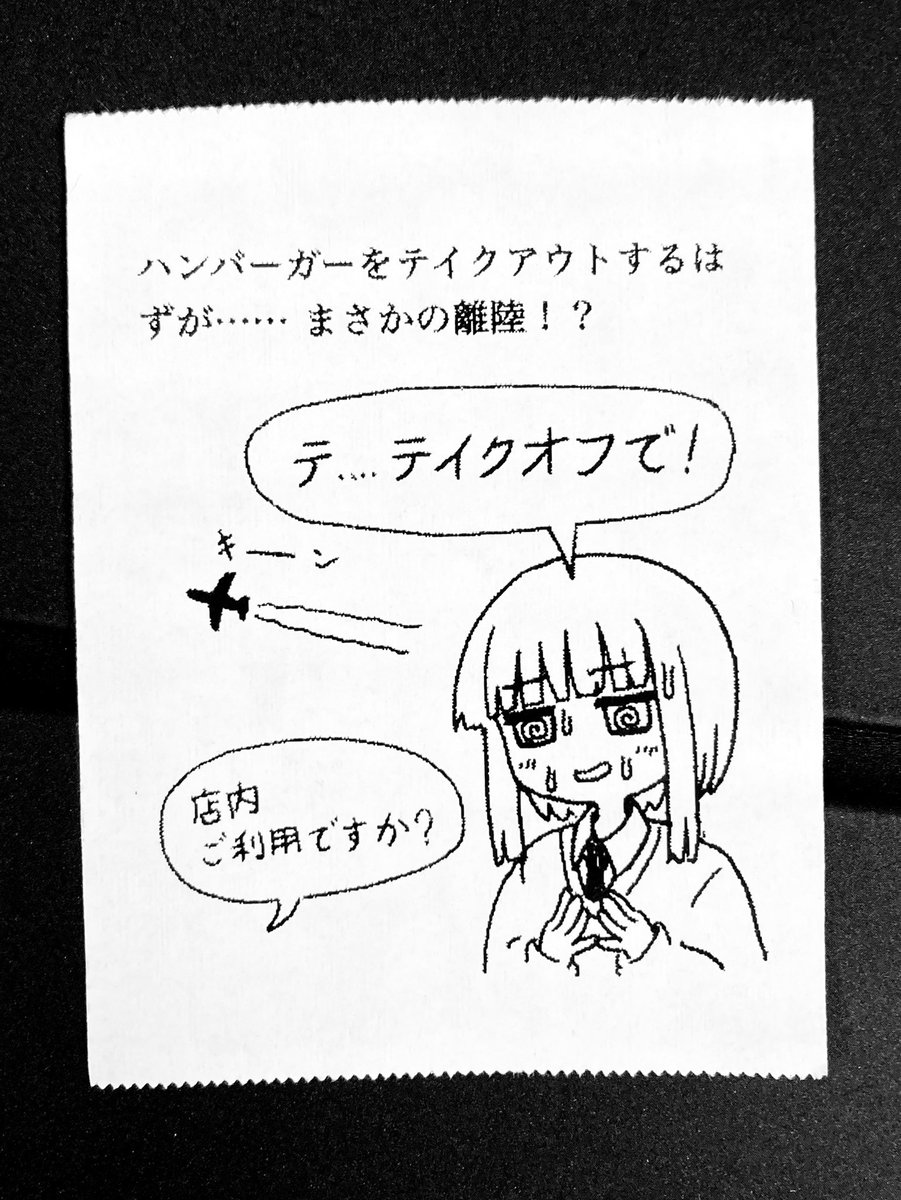 ハンバーガーをテイクアウトするは
ずが…… まさかの離陸！？
テ....テイクオフで!
キーン
店内
ご利用ですか?